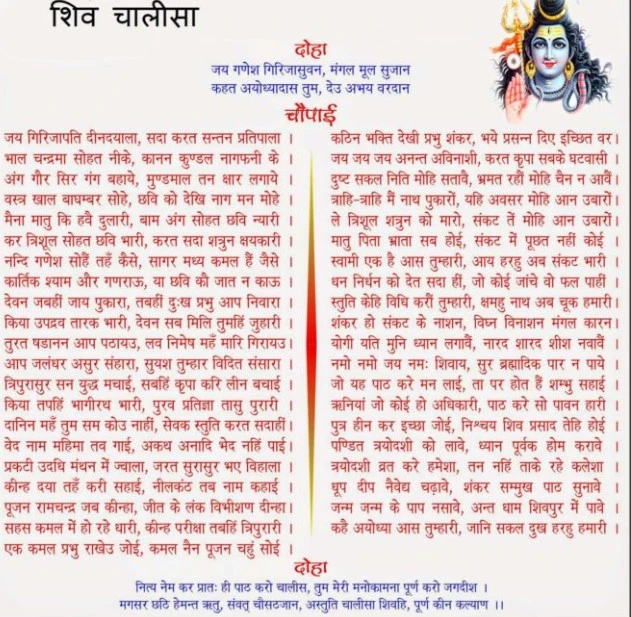 शिव चालीसा
दोहा
जय गणेश गिरिजासुवन, मंगल मूल सुजान
कहत अयोध्यादास तुम, देउ अभय वरदान
चौपाई
जय गिरिजापति दीनदयाला, सदा करत सन्तन प्रतिपाला ।
भाल चन्द्रमा सोहत नीके, कानन कुण्डल नागफनी के ।
अंग गौर सिर गंग बहाये, मुण्डमाल तन क्षार लगाये ।
वस्त्र खाल बाघम्बर सोहे, छवि को देखि नाग मन मोहे ।
मैना मातु कि हवै दुलारी, बाम अंग सोहत छवि न्यारी ।
कर त्रिशूल सोहत छवि भारी, करत सदा शत्रुन क्षयकारी ।
नन्दि गणेश सोहैं तहँ कैसे, सागर मध्य कमल हैं जैसे ।
कार्तिक श्याम और गणराऊ, या छवि कौ जात न काऊ ।
देवन जबहीं जाय पुकारा, तबहीं दुःख प्रभु आप निवारा ।
किया उपद्रव तारक भारी, देवन सब मिलि तुमहिं जुहारी ।
तुरत षडानन आप पठायउ, लव निमेष महँ मारि गिरायउ।
आप जलंधर असुर संहारा, सुयश तुम्हार विदित संसारा ।
त्रिपुरासुर सन युद्ध मचाई, सबहिं कृपा करि लीन बचाई ।
किया तपहिं भागीरथ भारी, पुरव प्रतिज्ञा तासु पुरारी ।
दानिन महँ तुम सम कोउ नाहीं, सेवक स्तुति करत सदाहीं।
वेद नाम महिमा तव गाई, अकथ अनादि भेद नहिं पाई।
प्रकटी उदधि मंथन में ज्वाला, जरत सुरासुर भए विहाला ।
कीन्ह दया तहँ करी सहाई, नीलकंठ तब नाम कहाई ।
पूजन रामचन्द्र जब कीन्हा, जीत के लंक विभीशण दीन्हा।
सहस कमल में हो रहे धारी, कीन्ह परीक्षा तबहिं त्रिपुरारी ।
एक कमल प्रभु राखेउ जोई, कमल नैन पूजन चहुं सोई ।
कठिन भक्ति देखी प्रभु शंकर, भये प्रसन्न दिए इच्छित वर।
जय जय जय अनन्त अविनाशी, करत कृपा सबके घटवासी ।
दुष्ट सकल निति मोहि सतावै, भ्रमत रहौं मोहि चैन न आवैं।
त्राहि-त्राहि मैं नाथ पुकारों, यहि अवसर मोहि आन उबारों।
ले त्रिशूल शत्रुन को मारो, संकट तें मोहि आन उबारों।
मातु पिता भ्राता सब होई, संकट में पूछत नहीं कोई ।
स्वामी एक है आस तुम्हारी, आय हरहु अब संकट भारी ।
धन निर्धन को देत सदा हीं, जो कोई जांचे वो फल पाहीं ।
स्तुति केहि विधि करौं तुम्हारी, क्षमहु नाथ अब चूक हमारी।
शंकर हो संकट के नाशन, विघ्न विनाशन मंगल कारन।
योगी यति मुनि ध्यान लगावैं, नारद शारद शीश नवावैं ।
नमो नमो जय नमः शिवाय, सुर ब्रह्मादिक पार न पाये ।
जो यह पाठ करे मन लाई, ता पर होत हैं शम्भु सहाई ।
ऋनियां जो कोई हो अधिकारी, पाठ करे सो पावन हारी ।
पुत्र हीन कर इच्छा जोई, निश्चय शिव प्रसाद तेहि होई ।
पण्डित त्रयोदशी को लावे, ध्यान पूर्वक होम करावे ।
त्रयोदशी व्रत करे हमेशा, तन नहिं ताके रहे कलेशा ।
धूप दीप नैवेद्य चढ़ावे, शंकर सम्मुख पाठ सुनावे ।
जन्म जन्म के पाप नसावे, अन्त धाम शिवपुर में पावे ।
कहै अयोध्या आस तुम्हारी, जानि सकल दुख हरहु हमारी ।
दोहा
नित्य नेम कर प्रातः ही पाठ करो चालीस, तुम मेरी मनोकामना पूर्ण करो जगदीश ।
मगसर छठि हेमन्त ऋतु, संवत् चौसठजान, अस्तुति चालीसा शिवहि, पूर्ण कीन कल्याण ।।